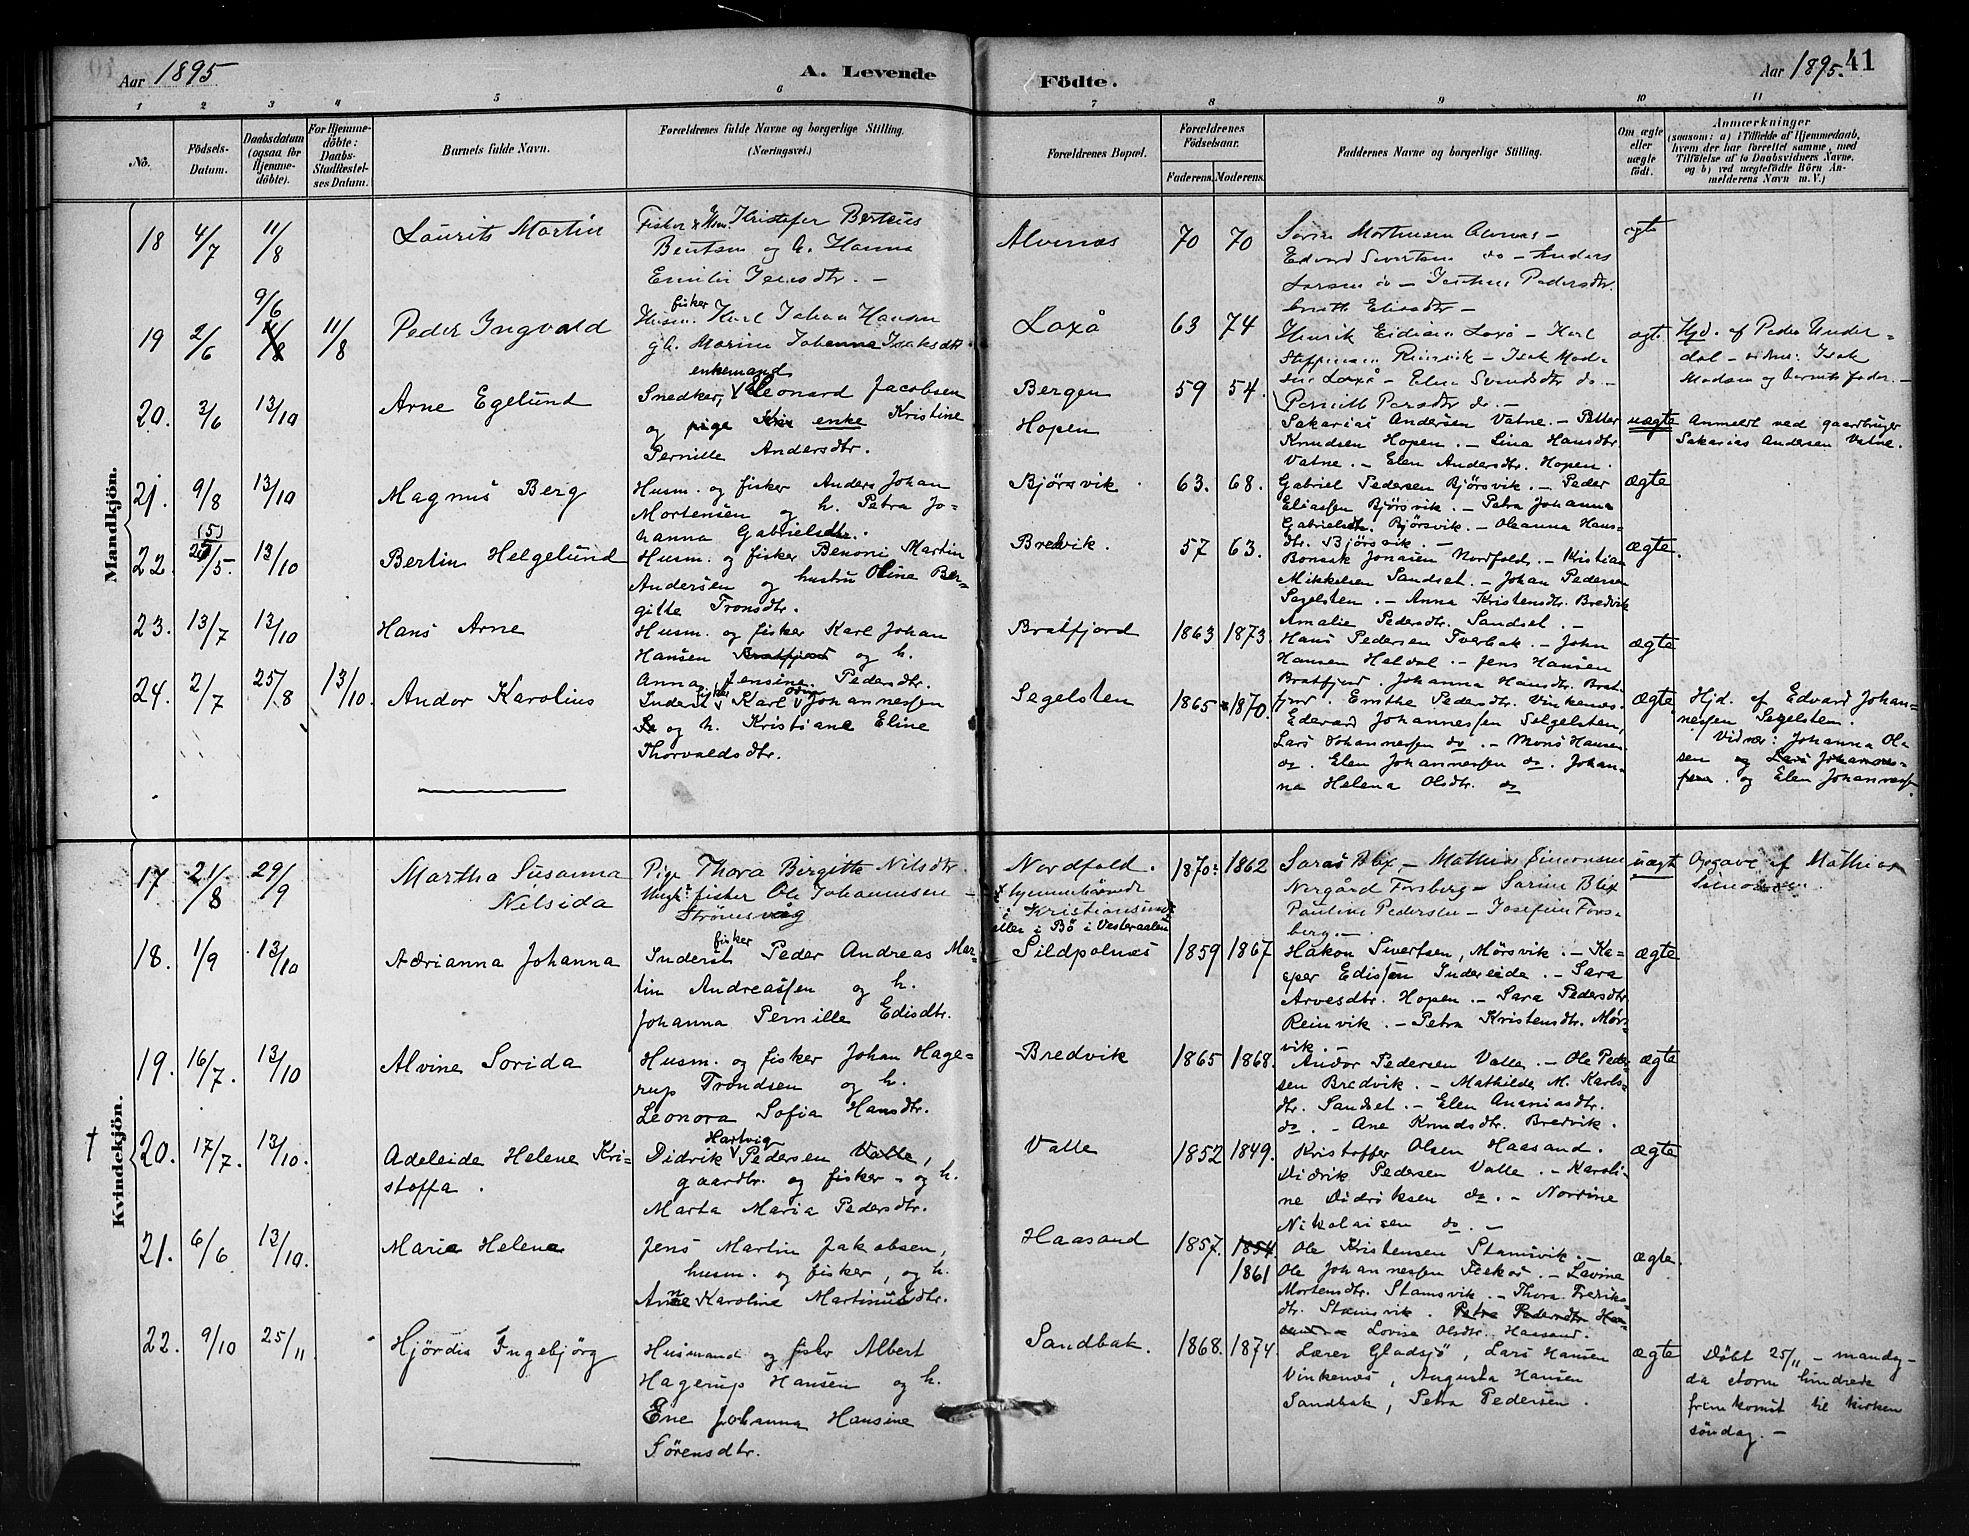 Aar 1895
A. Levende
Födte.
Aar 1895.
41
1 2 3 4 5 6 7 8 9 10 11
No.
Födsels-
Datum.
Daabsdatum
(ogsaa for
Hjemme-
döbte).
For Hjemme-
döbte:
Daabs-
Stadfæstel-
ses Datum.
Barnets fulde Navn.
Forældrenes fulde Navne og borgerlige Stilling.
(Næringsvei.)
Forældrenes Bopæl.
Forældrenes
Födselsaar.
Faderens. Moderens.
Faddernes Navne og borgerlige Stilling.
Om ægte
eller
uægte
födt.
Anmærkninger
(saasom: a) i Tilfælde af Hjemmedaab,
hvem der har forrettet samme, med
Tilföielse af to Daabsvidners Navne,
og b) ved uægtefödte Börn An-
melderens Navn m. V.)
Mandkjön.
18 4/7 11/8
Laurits Martin
Fisker Kristofer Berteus
Bentsen og h. Hanna
Emilie Jensdtr. –
70 70
Edvard Sivertsen do – Anders
Larsen do – Pedersdtr.
ægte
19 2/6 9/6 11/8
Peder Ingvald
fisker
Husm. Karl Johan Hansen
g h. Marine Johanna Isaksdtr
Loxå
63 74
Henrik Loxå – Karl
Steffensen Reinvik – Isak Mad-
sen Loxå – Elen Svendsdtr do –
Pernille do –
ægt.
Hjd. af Peder Under-
dal – vidn: Isak
Madsen og barnets fader. –
20. 3/6 13/10
Arne Egelund
enkemand
Snedker, Leonard Jacobsen
og pige enke Kristine
Pernille Andersdtr.
Bergen
Hopen
59 54.
Sakarias Andersen Vatne. – Petter
Knudsen Hopen. – Lina Hansdtr.
Vatne. – Elen Andersdtr. Hopen.
uægte
Anmeldt ved gaardbruger
Sakarias Andersen Vatne.
21. 9/8 13/10
Magnus Berg
Husm. og fisker Anders Johan
Mortensen og h. Petra Jo-
hanna Gabrielsdtr.
Bjørsvik.
63. 68.
Gabriel Pedersen Bjørsvik. – Peder
Eliassen Bjørsvik. – Petra Johanna
Gabrielsdtr. Bjørsvik. – Oleanna Hans-
dtr. Bjørsvik. –
ægte
22. (5) 13/10
Bertin Helgelund
Husm. og fisker Benoni Martin
Andersen og hustru Oline Ber-
gitte Tronsdtr.
Bredvik.
57 63.
Bonsak Jonasen Nordfold. – Kristian
Mikkelsen Sandset. – Johan Pedersen
Segelsten. – Anna Kristensdtr. Bredvik
Amalie Pedersdtr. Sandset. –
ægte.
23. 13/7 13/10
Hans Arne
Husm. og fisker Karl Johan
Hansen Bratfjord og h.
Anna Jensine Pedersdtr.
Bratfjord
1863 1873
Hans Pedersen Tverbak. – John
Hansen Heldal. – Jens Hansen
Bratfjord. Johanna Hansdtr. Brat-
fjord. Emthe Pedersdtr. Vinkenes.
ægte
24. 2/7 25/8 13/10.
Andor Karolius
fisker Odin
Inderst Karl Johannessen
og h. Kristiane Eline
Thorvaldsdtr.
Segelsten
1865 1870.
Edevard Johannessen Selgelsten,
Lars Johannessen do. – Mons Hansen
do. Elen Johannessen do. Johan-
na Helena Olsdtr. do
ægte
Hjd. af Edvard Johan-
nessen Segelsten.
Vidner: Johanna Ol-
sen og Lars Johannes-
sen. og Elen Johanness.
Kvindekjön.
17 21/8 29/9
Martha Susanna
Nilsida
Pige Thora Birgitte Nilsdtr.
Ungk. fisker Ole Johannesen –
Strömsvåg
Nordfold.
hjemmehörende
i Kristiansund
eller i Bö i Vesteraalen
1870: 1862
Saras Blix – Mathias Simonsen
Nergård Forsberg – Sarine Blix
Pauline Pedersen – Josefine Fors-
berg. –
uægt
Opgave af Mathias
Simonsen.
18. 1/9 13/10
Adrianna Johanna
fisker
Inderst Peder Andreas Mar-
tin Andreassen og h.
Johanna Pernille Edisdtr.
Sildpolnes
1859 1867
Hakon Sivertsen, Mørsvik. – Ka-
sper Edissen Indereide. – Sara
Arvesdtr. Hopen. – Sara Pedersdtr
Reinvik. – Petra Kristensdtr. Mørs-
vik. –
ægte
19. 16/7. 13/10
Alvine Sorida
Husm. og fisker Johan Hage-
rup Trondsen og h.
Leonora Sofia Hansdtr.
Bredvik
1865 1868.
Andor Pedersen Valle. – Ole Peder-
sen Bredvik. – Mathilde M. Karls-
dtr. Sandset. – Elen Ananiasdtr.
do. – Ane Knudsdtr. Bredvik.
ægte
† 20. 17/7. 13/10.
Adeleide Helene Kri-
stoffa.
Hartvig
Didrik Pedersen Valle,
gaardbr. og fisker – og h.
Marta Maria Pedersdtr.
Valle
1852 1849.
Kristoffer Olsen Haasand.
Didrik Pedersen Valle. – Karoli-
ne Didriksen do. – Nordine
Nikolaisen do. –
ægte
21. 6/6 13/10.
Marie Helene
Jens Martin Jakobsen,
husm. og fisker, og h.
Anne Karoline Martinusdtr.
Haasand
1857. 1854.
1861
Ole Kristensen Stamsvik. –
Ole Johannessen – Lavine
Mortensdtr. Stamsvik. – Thora Fredriks-
dtr. Stamsvik. Petra Pedersdtr. Haa-
sand. – Lovise Olsdtr. Haasand.
ægte.
22. 9/10 25/11
Hjördis Ingebjörg
Husmand og fisker Albert
Hagerup Hansen og h.
Ene Johanna Hansine
Sörensdtr.
Sandbak.
1868. 1874.
Lærer Gladsjö, Lars Hansen
Vinkenes, Augusta Hansen
Sandbak, Petra Pedersen.
ægte
Döbt 25/11 – mandag –
da storm hindrede
fremkomst til kirken
söndag. –